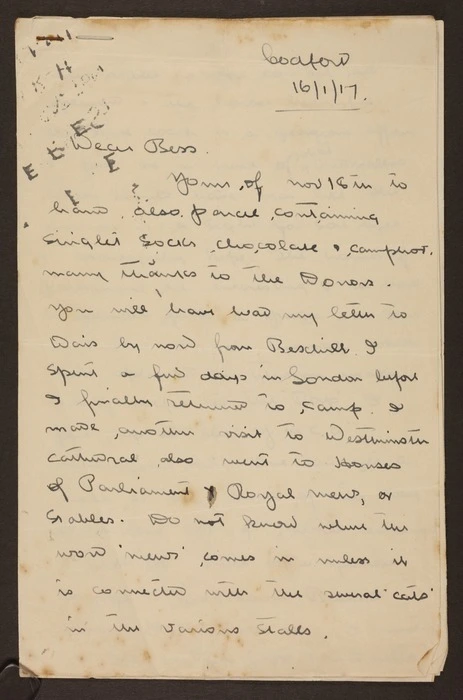 Codford
16/1/17.
Dear Bess.
Yours of Nov 18th to
hand also parcel containing
singlet socks chocolate & camphor.
many thanks to the Donors.
You will have had my letter to
Wais by now from Bexhill. I
spent a few days in London before
I finally returned to camp. I
made another visit to Westminster
Cathedral also went to Houses
of Parliament & Royal mews, or
Stables. Do not know where the
word 'mews' comes in unless it
is connected with the several 'cats'
in the various stalls.